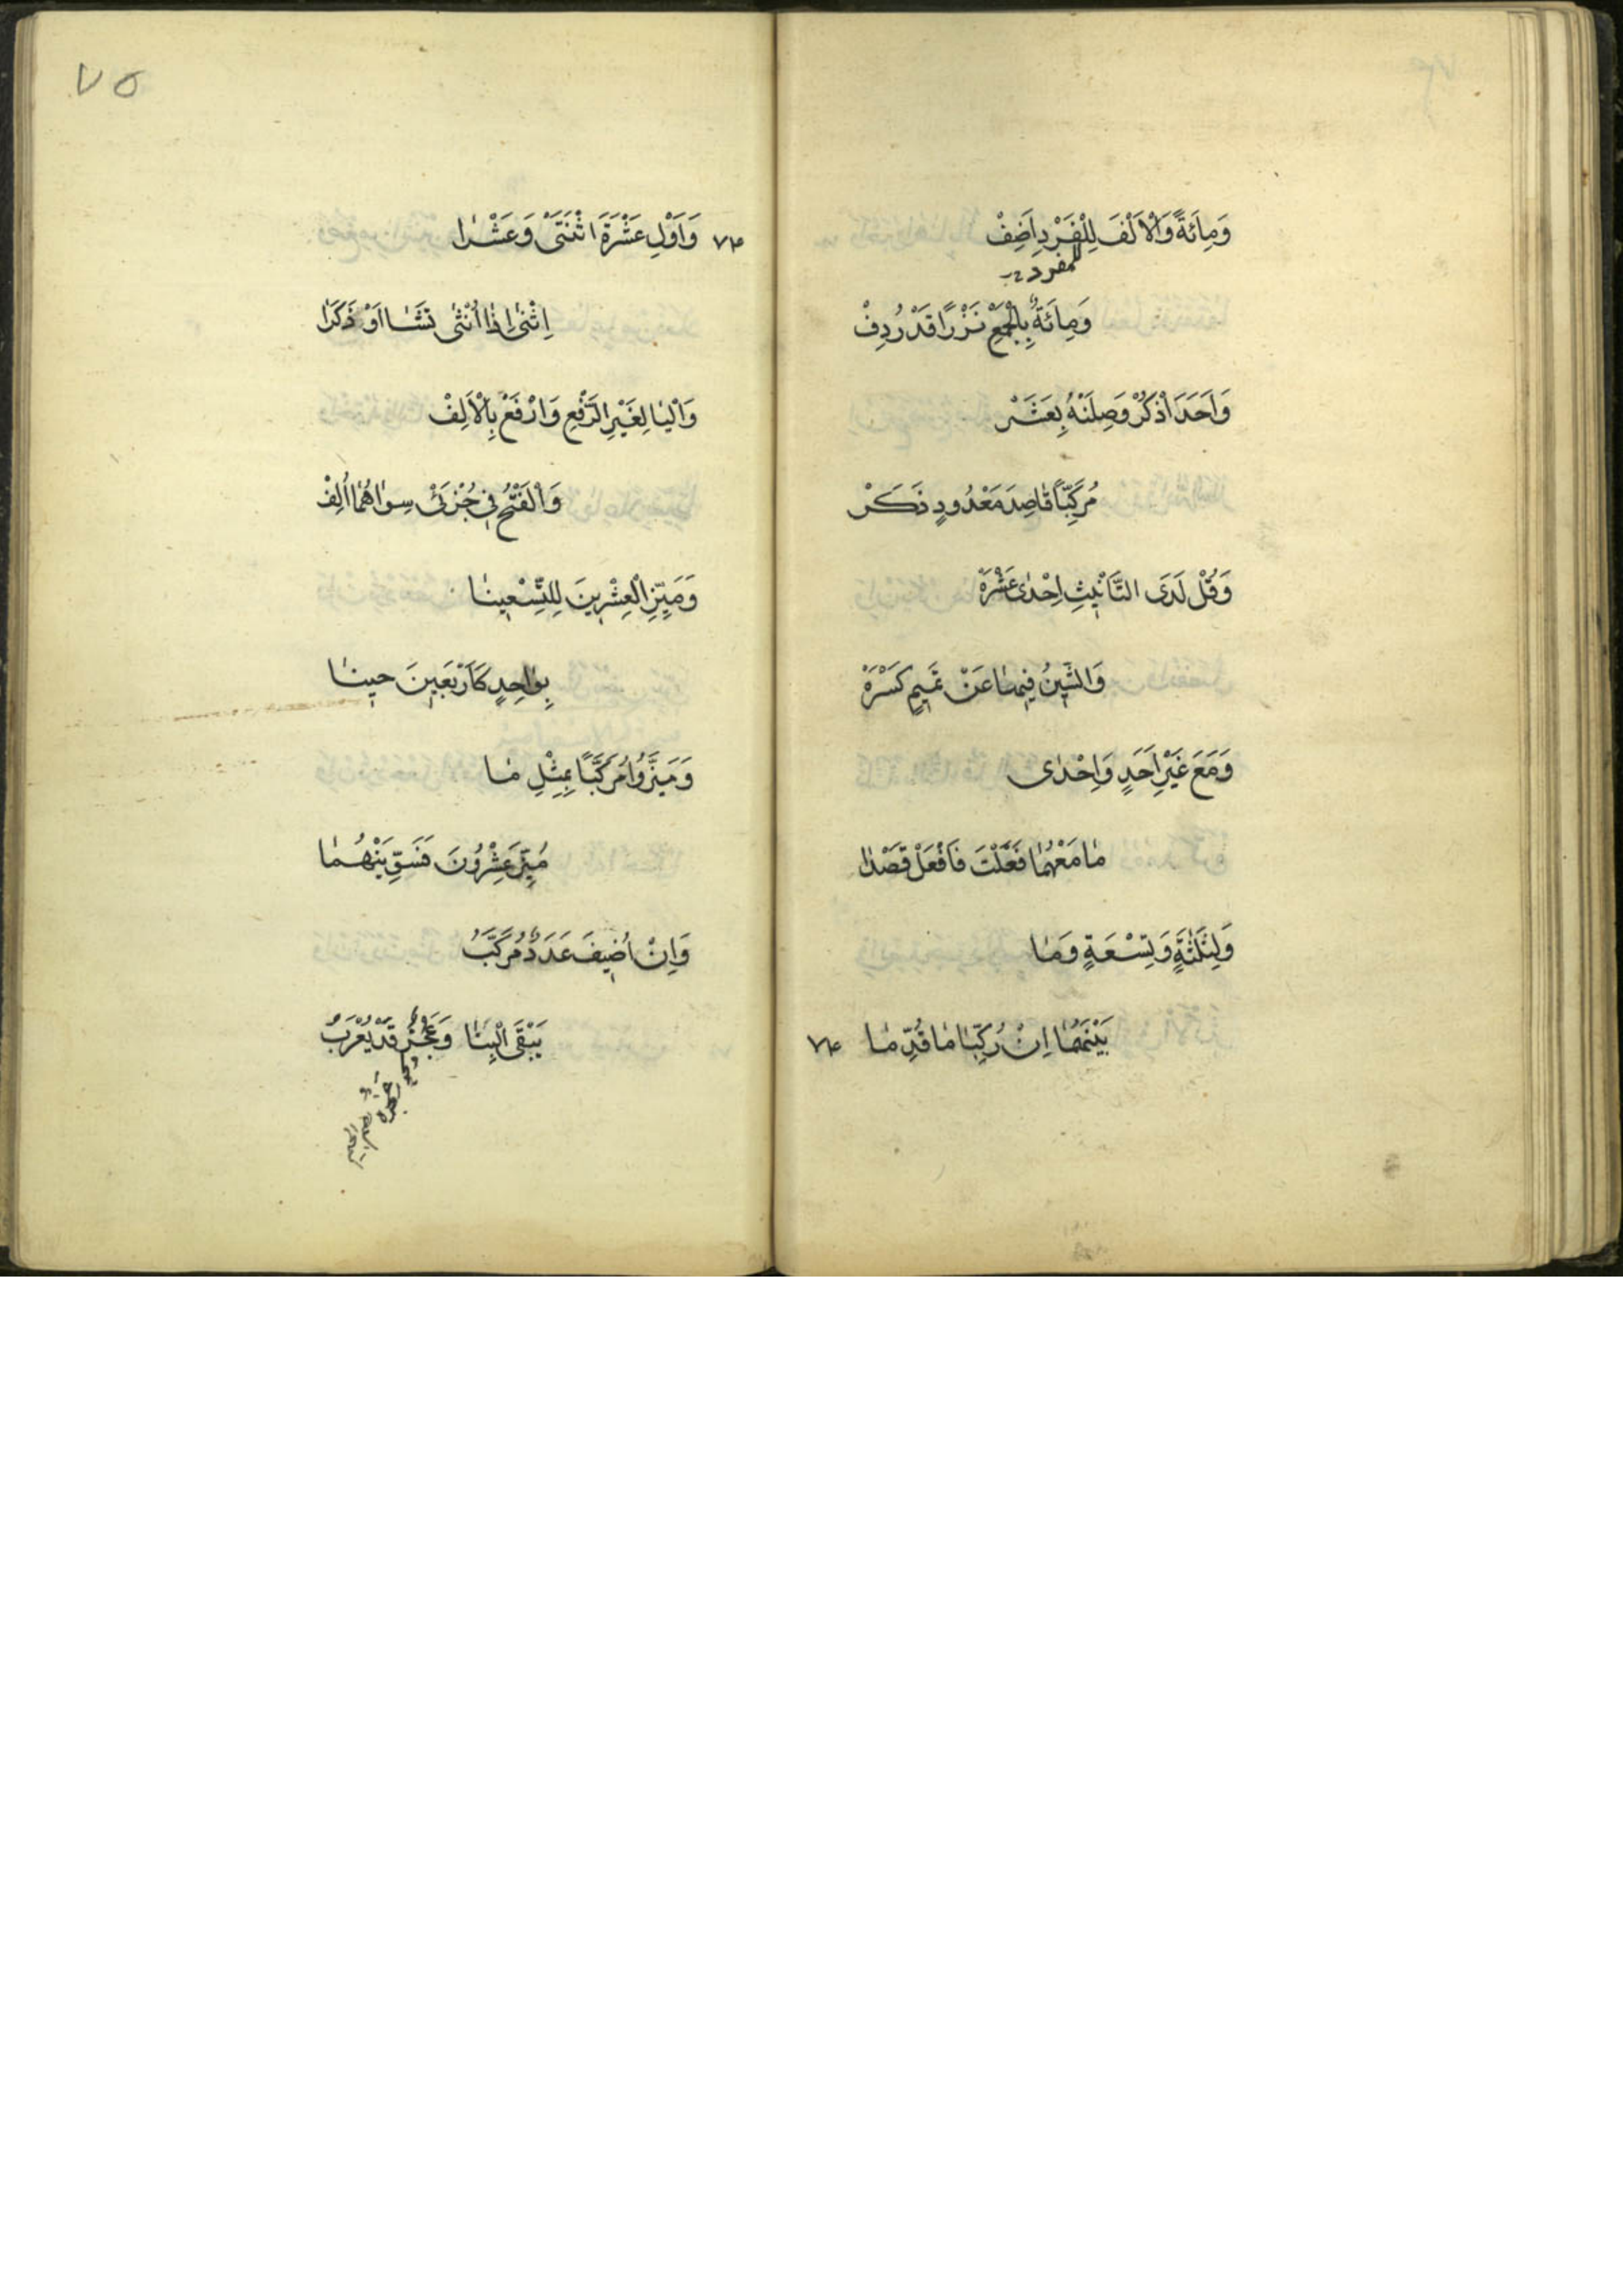 وَمِأَئَةً وَالْاَلْفَ لِلْفَرْدِ اَضِفْ
للمفرد
وَمِائَةٌ بِالْجَمْعِ نَزْرًا قَدْ رُدِفْ
وَاَحَدَ اذْكُرْ وَصِلَنْهُ بِعَشَرْ
مُرَكِّبًا قَاصِدَ مَعْدُودٍ ذَكَرْ
وَقُلْ لَدَى التَّأْنِيثِ اِحْدٰى عَشْرَهْ
وَالشِّينُ فِيهَا عَنْ تَمِيمٍ كَسْرَهْ
وَمَعَ غَيْرِ اَحَدٍ وَاِحْدٰى
مَا مَعْهُمَا فَعَلْتَ فَافْعَلْ قَصْدَا
وَلِثَلٰثَةٍ وَتِسْعَةٍ وَمَا
بَيْنَهُمَا اِنْ رُكِّبَا مَا قُدِّمَا
٧٤
٧٥
٧٤ وَاَوْلِ عَشْرَةَ اثْنَتَىْ وَعَشْرَا
اِثْنَىْ اِذَا اُنْثٰى تَشَا اَوْ ذَكَرَا
وَالْيَا لِغَيْرِ الرَّفْعِ وَارْفَعْ بِالْاَلِفْ
وَالْفَتْحُ فِى جُزْئَىْ سِوَاهُمَا اُلِفْ
وَمَيِّزِ الْعِشْرِينَ لِلتِّسْعِينَا
بِوَاحِدٍ كَاَرْبَعِينَ حِينَا
وَمَيَّزُوا مُرَكَّبًا بِمِثْلِ مَا
مُيِّزَ عِشْرُونَ فَسَوِّيَنْهُمَا
وَاِنْ اُضِيفَ عَدَدٌ مُرَكَّبُ
يَبْقَى الْبِنَا وَعَجُزٌ قَدْ يُعْرَبُ